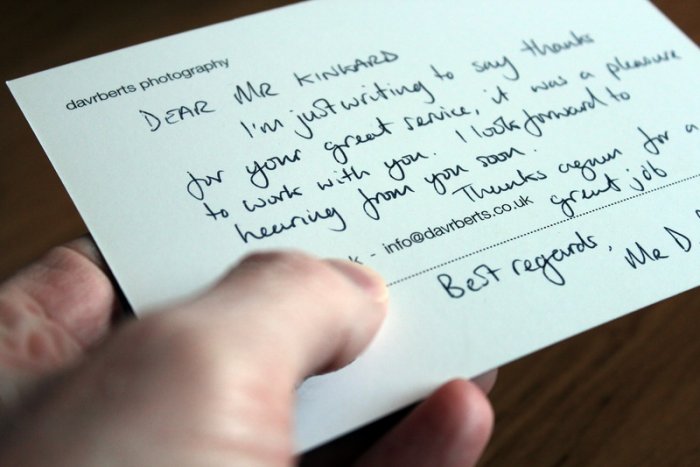 davrberts photography
DEAR MR KINKARD
I'm just writing to say thanks
for your great service, it was a pleasure
to work with you. I look forward to
hearing from you soon.
Thanks again for a
great job
k - info@davrberts.co.uk
Best regards,
Mr D